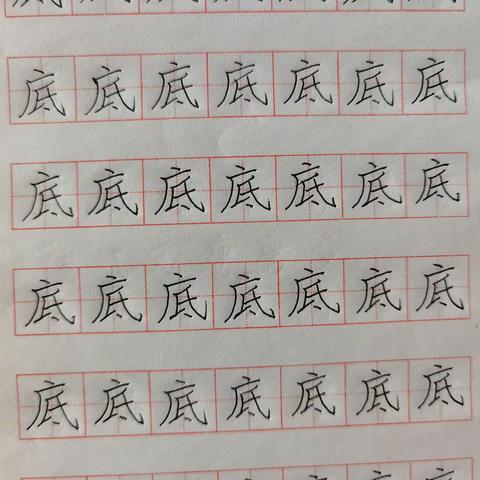 底底底底底底底
底底底底底底底
底底底底底底底
底底底底底底底